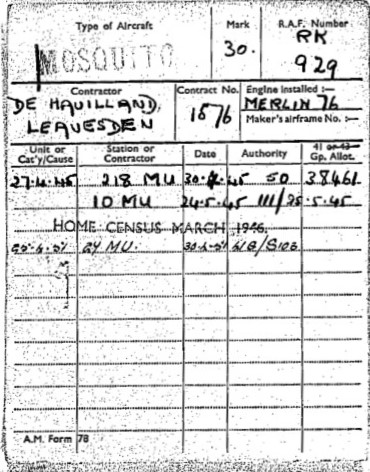 Type of Aircraft
Mark
R.A.F. Number
MOSQUITO
30.
RK
929
Contractor
Contract No.
Engine installed :—
DE HAVILLAND,
LEAVESDEN
1576
MERLIN 76
Maker's airframe No. :—
Unit or Cat'y/Cause
Station or Contractor
Date
Authority
41 or 43 Gp. Allot.
27.4.45 218 MU 30.4.45 50 38461
10 MU 24.5.45 111/25.5.45
HOME CENSUS MARCH, 1946.
24 MU.
A.M. Form 78